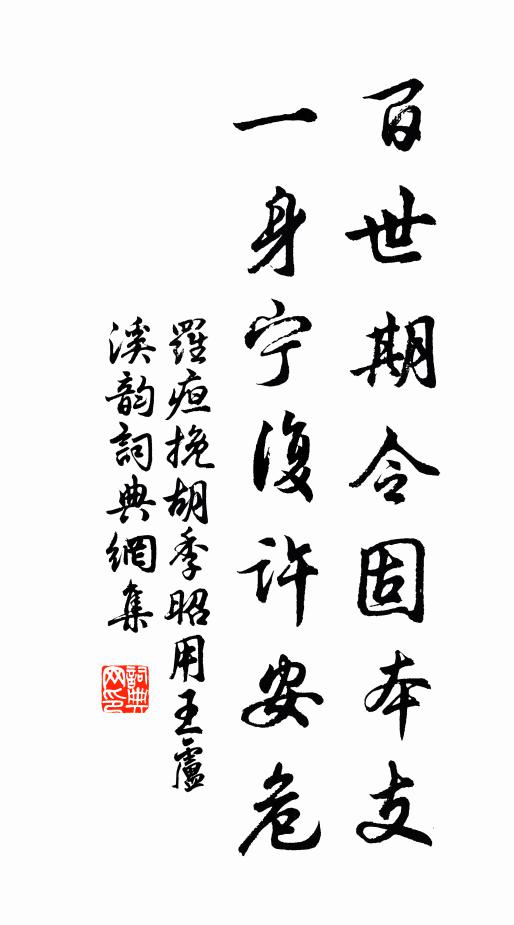 百世期令固本支
一身宁復許安危
羅疸挽胡季昭用王盧
溪韵詞典網集
詞典网印